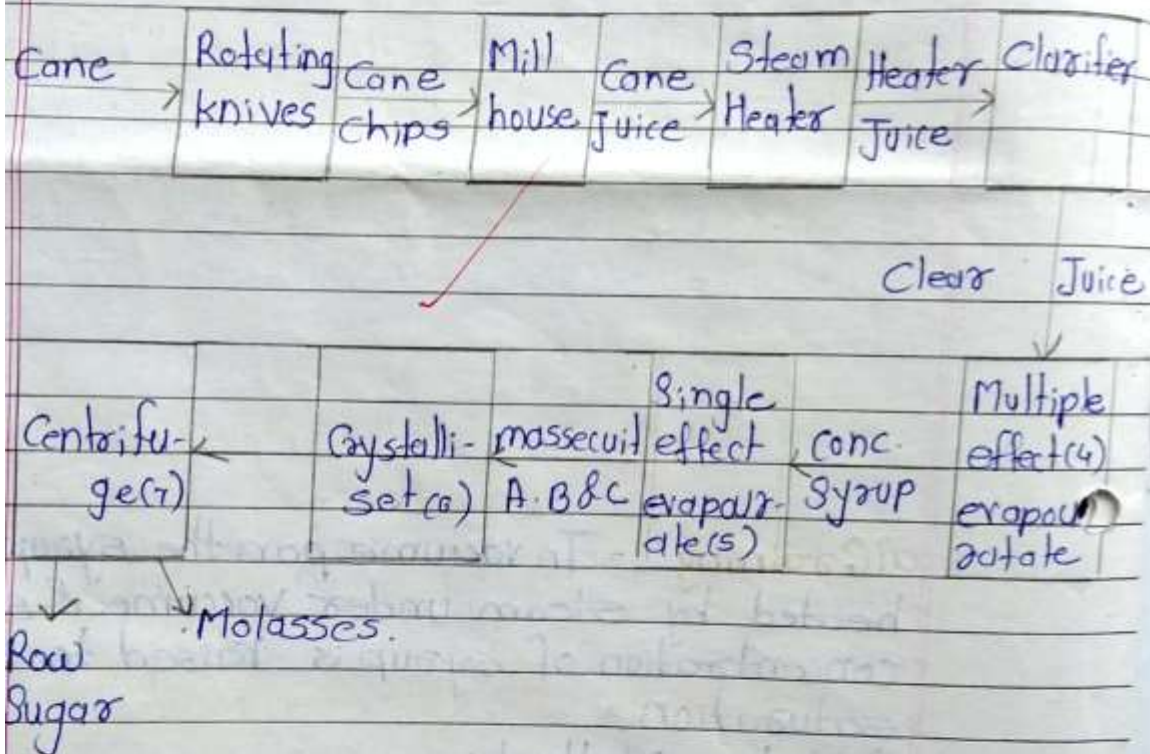 Cane
Rotating
knives
Cane
chips
Mill
house
Cane
Juice
Steam
Heater
Heater
Juice
Clarifier
Clear Juice
Multiple
effect(4)
evapou
ratate
conc.
Syrup
Single
effect
evapour-
ate(s)
massecuit
A.B&C
Crystalli-
set(6)
Centrifu-
ge(7)
Molasses.
Row
Sugar